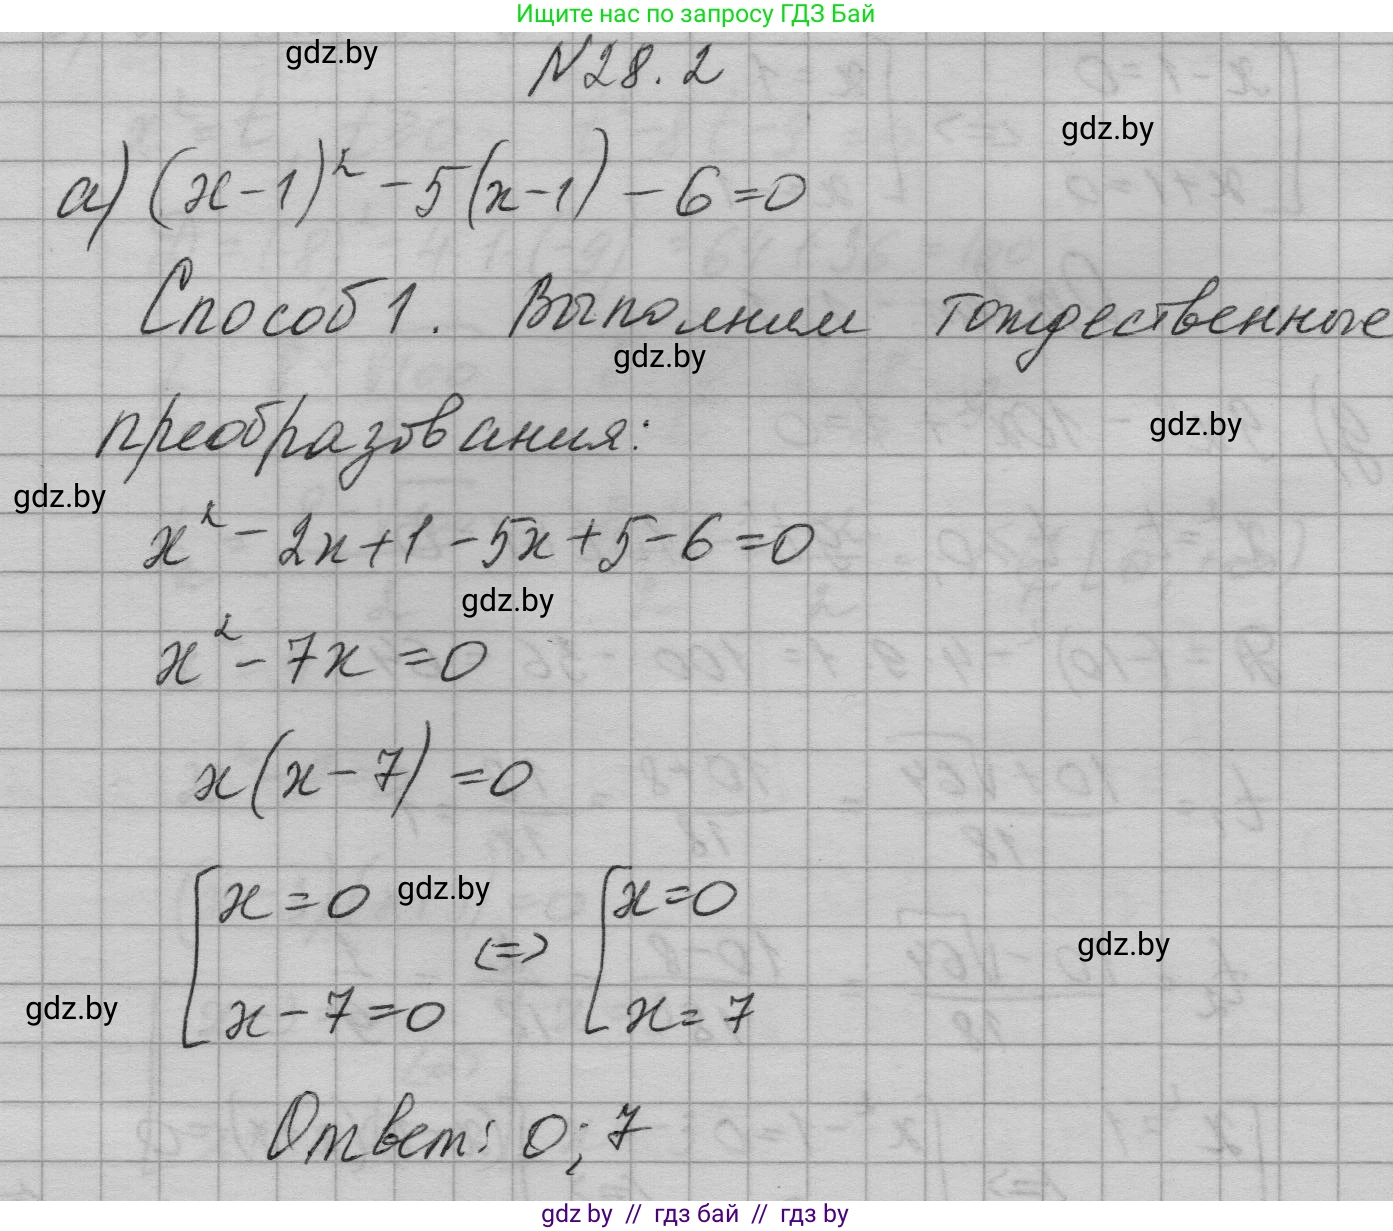 Ищите нас по запросу ГДЗ Бай
gdz.by
N28.2
gdz.by
а) (x-1)² - 5(x-1) - 6 = 0
Способ 1. Выполним тождественные
gdz.by
преобразования:
gdz.by
gdz.by
x² - 2x + 1 - 5x + 5 - 6 = 0
gdz.by
x² - 7x = 0
x(x - 7) = 0
[x = 0 <=> [x = 0
gdz.by
gdz.by
x - 7 = 0 x = 7
gdz.by
Ответ: 0; 7
gdz by // гдз бай // гдз by